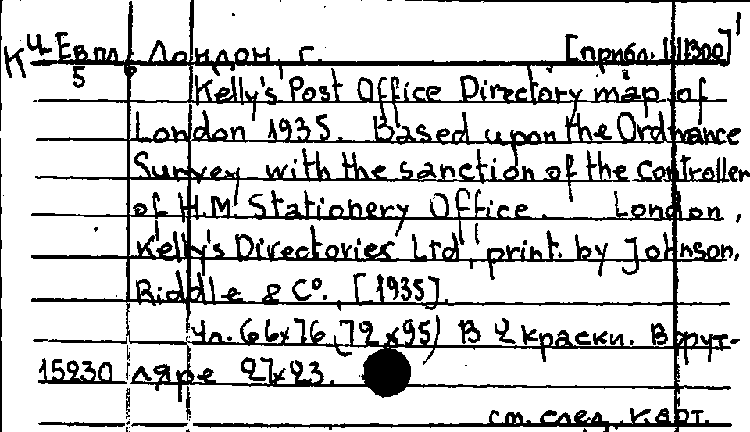 К Ч Евпл. Лондон, г. [прибл. 1:11300]
5
Kelly's Post Office Directory map of
London 1935. Based upon the Ordnance
Survey with the sanction of the Controller
of H.M. Stationery Office. London,
Kelly's Directories Ltd, print. by Johnson,
Riddle & Co., [1935].
Чл. 66x76 (72x95) В 2 краски. В фут-
15230 ляре 27x23.
см. след. карт.